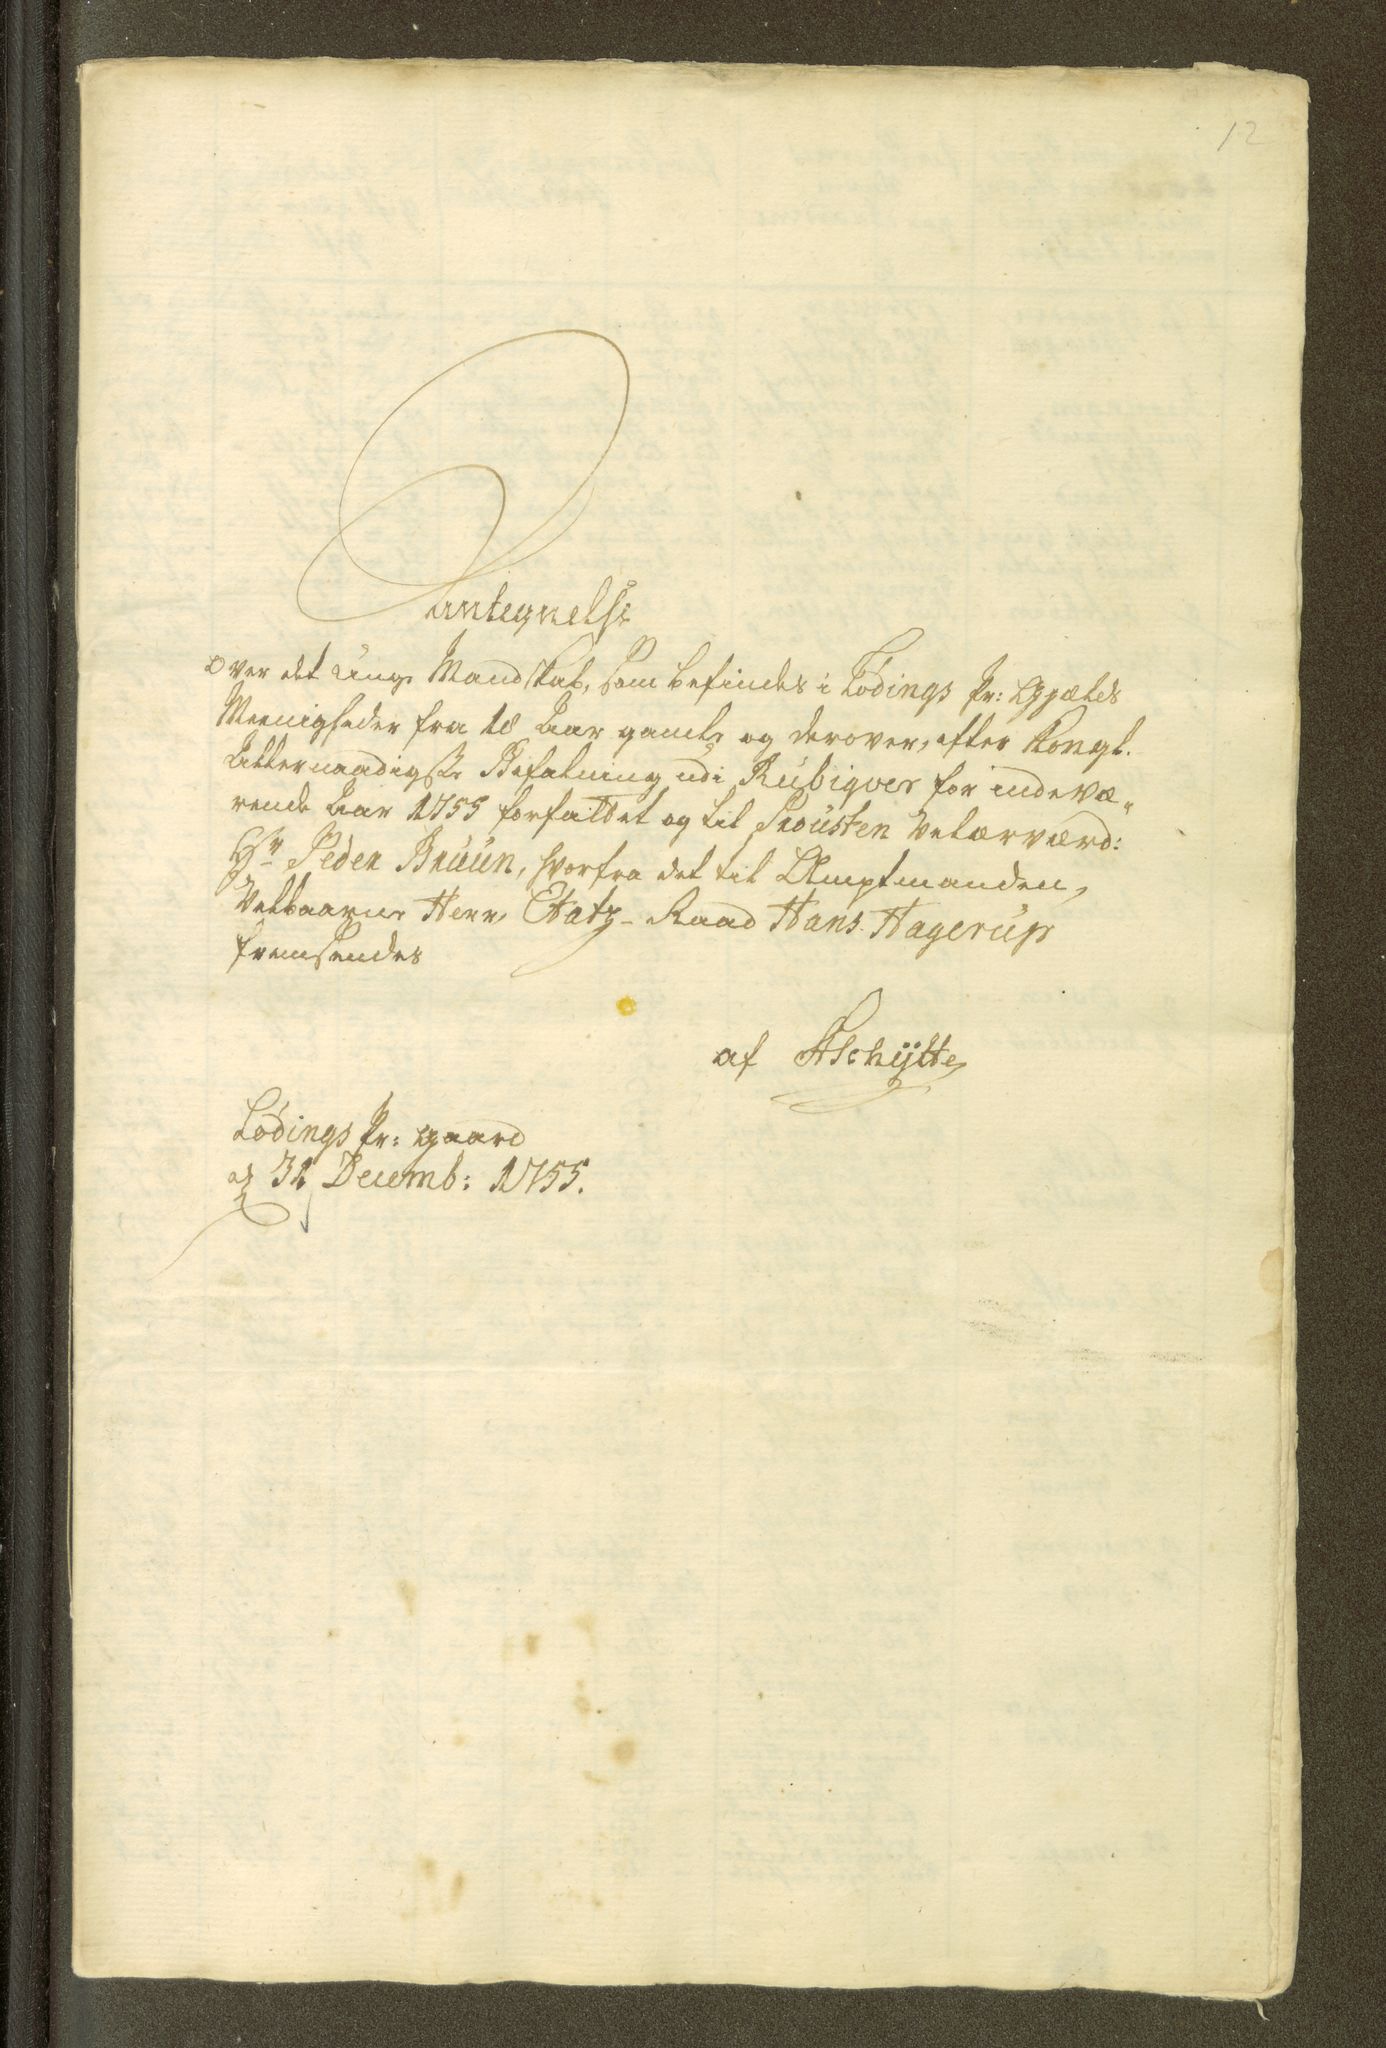 12
Antegnelse
over det unge Mandskab, som befindes i Lødings Pr: Gjælds
Meenigheder fra 10 Aar gamle og derover, efter Kongl.
Allernaadigste Befalning udi Rubiqver for indevæ-
rende Aar 1755 forfattet og til Prousten Velærværd:
Hr Peder Bruun, hvorfra det til Amptmanden,
Velbaarne Herr, Etatz-Raad Hans Hagerup
fremsendes
af ASchytte
Lødings Pr: gaard
d 31 Decemb: 1755.